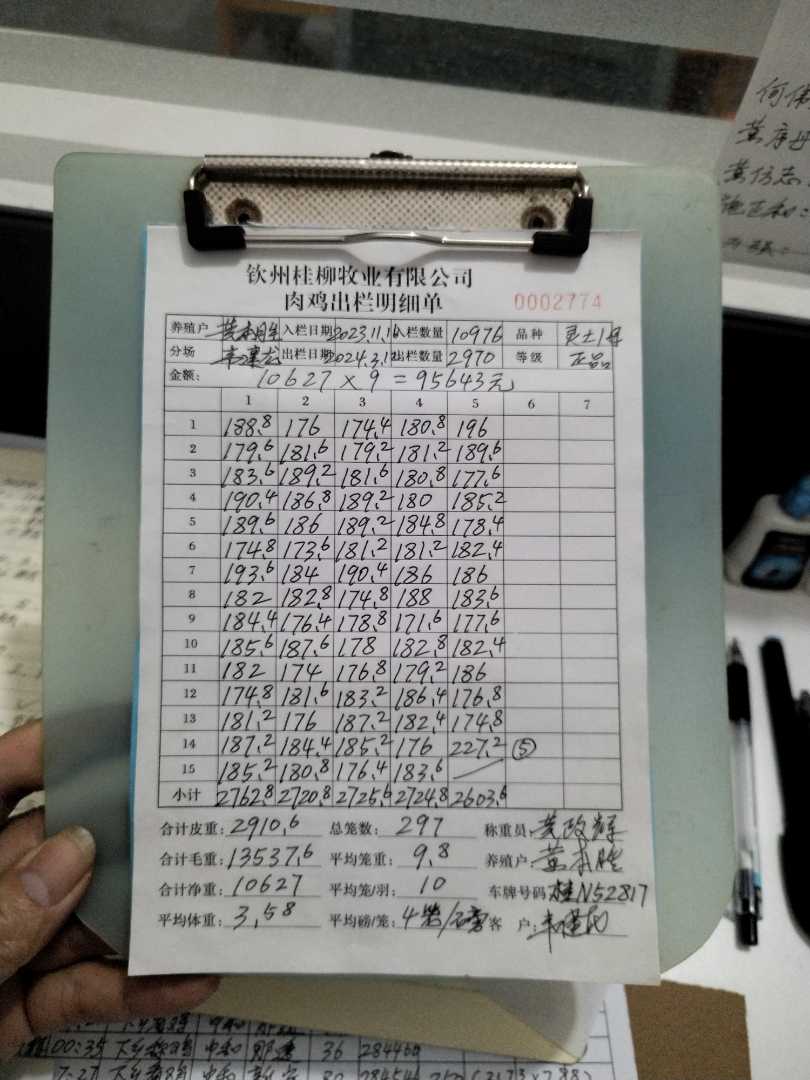 钦州桂柳牧业有限公司
肉鸡出栏明细单 0002774
养殖户 黄本胜 入栏日期 2023.11.16 入栏数量 10976 品种 灵土1号
分场 出栏日期 2024.3.12 出栏数量 2970 等级 正品
金额: 10627 × 9 = 95643元
1 2 3 4 5 6 7
1 188.8 176 174.4 180.8 196
2 179.6 181.6 179.2 181.2 189.6
3 183.6 189.2 181.6 180.8 177.6
4 190.4 186.8 189.2 180 185.2
5 189.6 186 189.2 184.8 178.4
6 174.8 173.6 181.2 181.2 182.4
7 193.6 184 190.4 186 186
8 182 182.8 174.8 188 183.6
9 184.4 176.4 178.8 171.6 177.6
10 185.6 187.6 178 182.8 182.4
11 182 174 176.8 179.2 186
12 174.8 181.6 183.2 186.4 176.8
13 181.2 176 187.2 182.4 174.8
14 187.2 184.4 185.2 176 227.2 ⑤
15 185.2 180.8 176.4 183.6
小计 2762.8 2720.8 2725.6 2724.8 2603.6
合计皮重: 2910.6 总笼数: 297 称重员: 黄政辉
合计毛重: 13537.6 平均笼重: 9.8 养殖户: 黄本胜
合计净重: 10627 平均笼/羽: 10 车牌号码 桂N52817
平均体重: 3.58 平均磅/笼: 4 客 户:
00:35 中和 36 284460
7:27